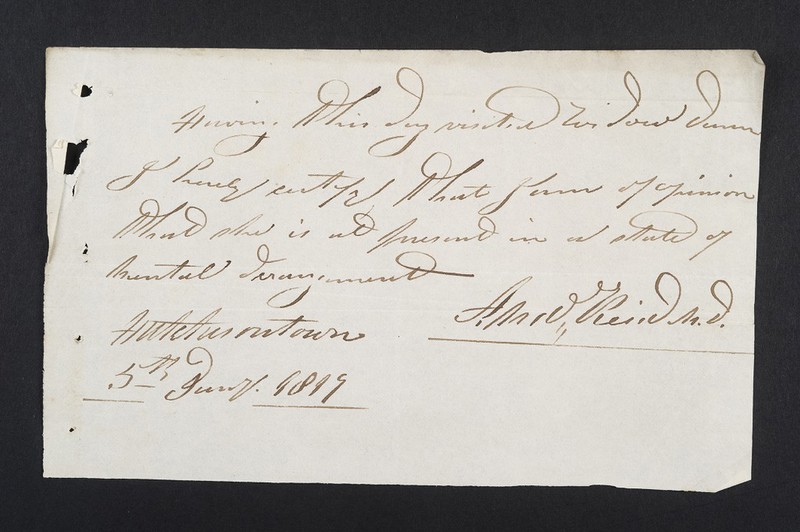 Having this day visited Widow Dunn
I hereby certify that I am of opinion
that she is at present in a state of
mental derangement
Reid M.D.
Hutchesontown
5th Jany. 1819